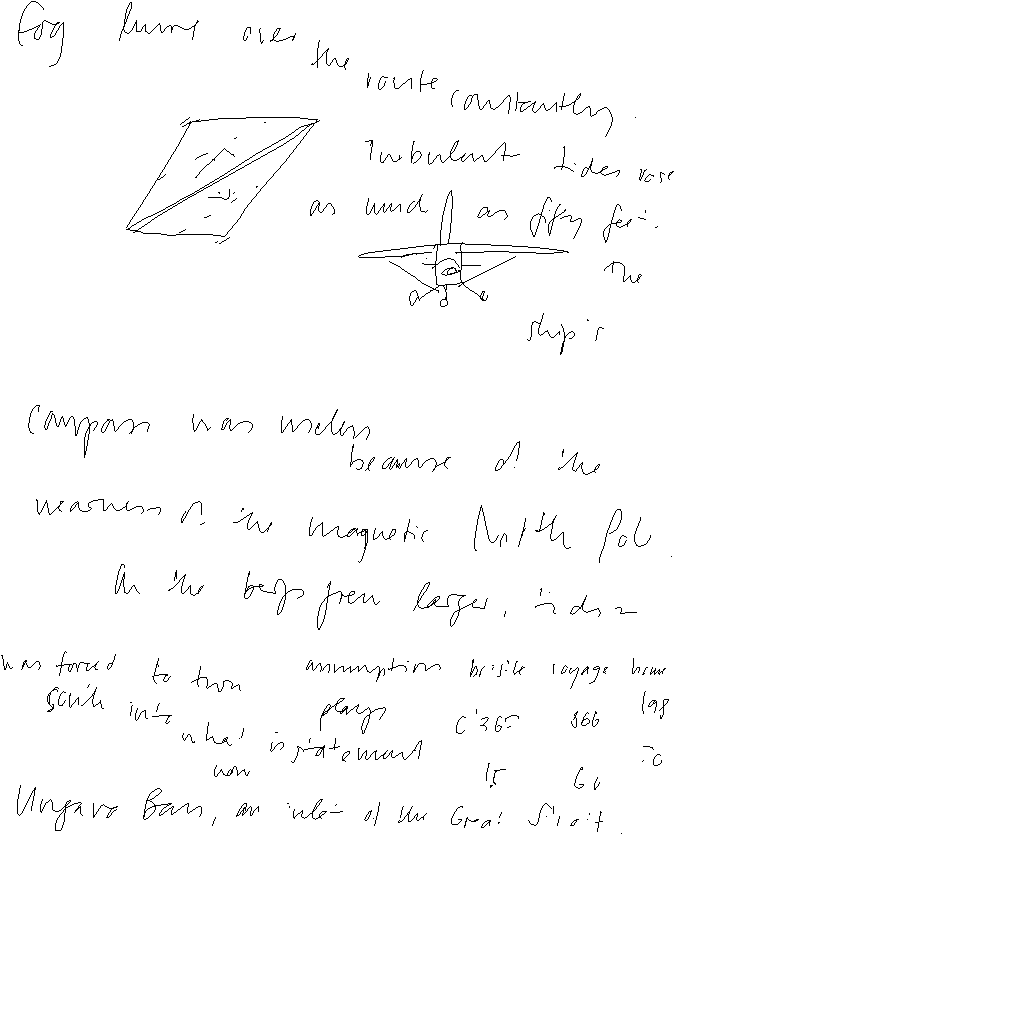 Fog hung over the route constantly.
Turbulent tides rose
as much as fifty feet.
The
ship's
compass was useless
because of the
nearness of the magnetic North Pole.
As the bergs grew larger,
was forced to turn
south into
what is
now
Ungava Bay, an inlet of the Great Strait.
assumption voyage home
plays 366 198
statement
15 60